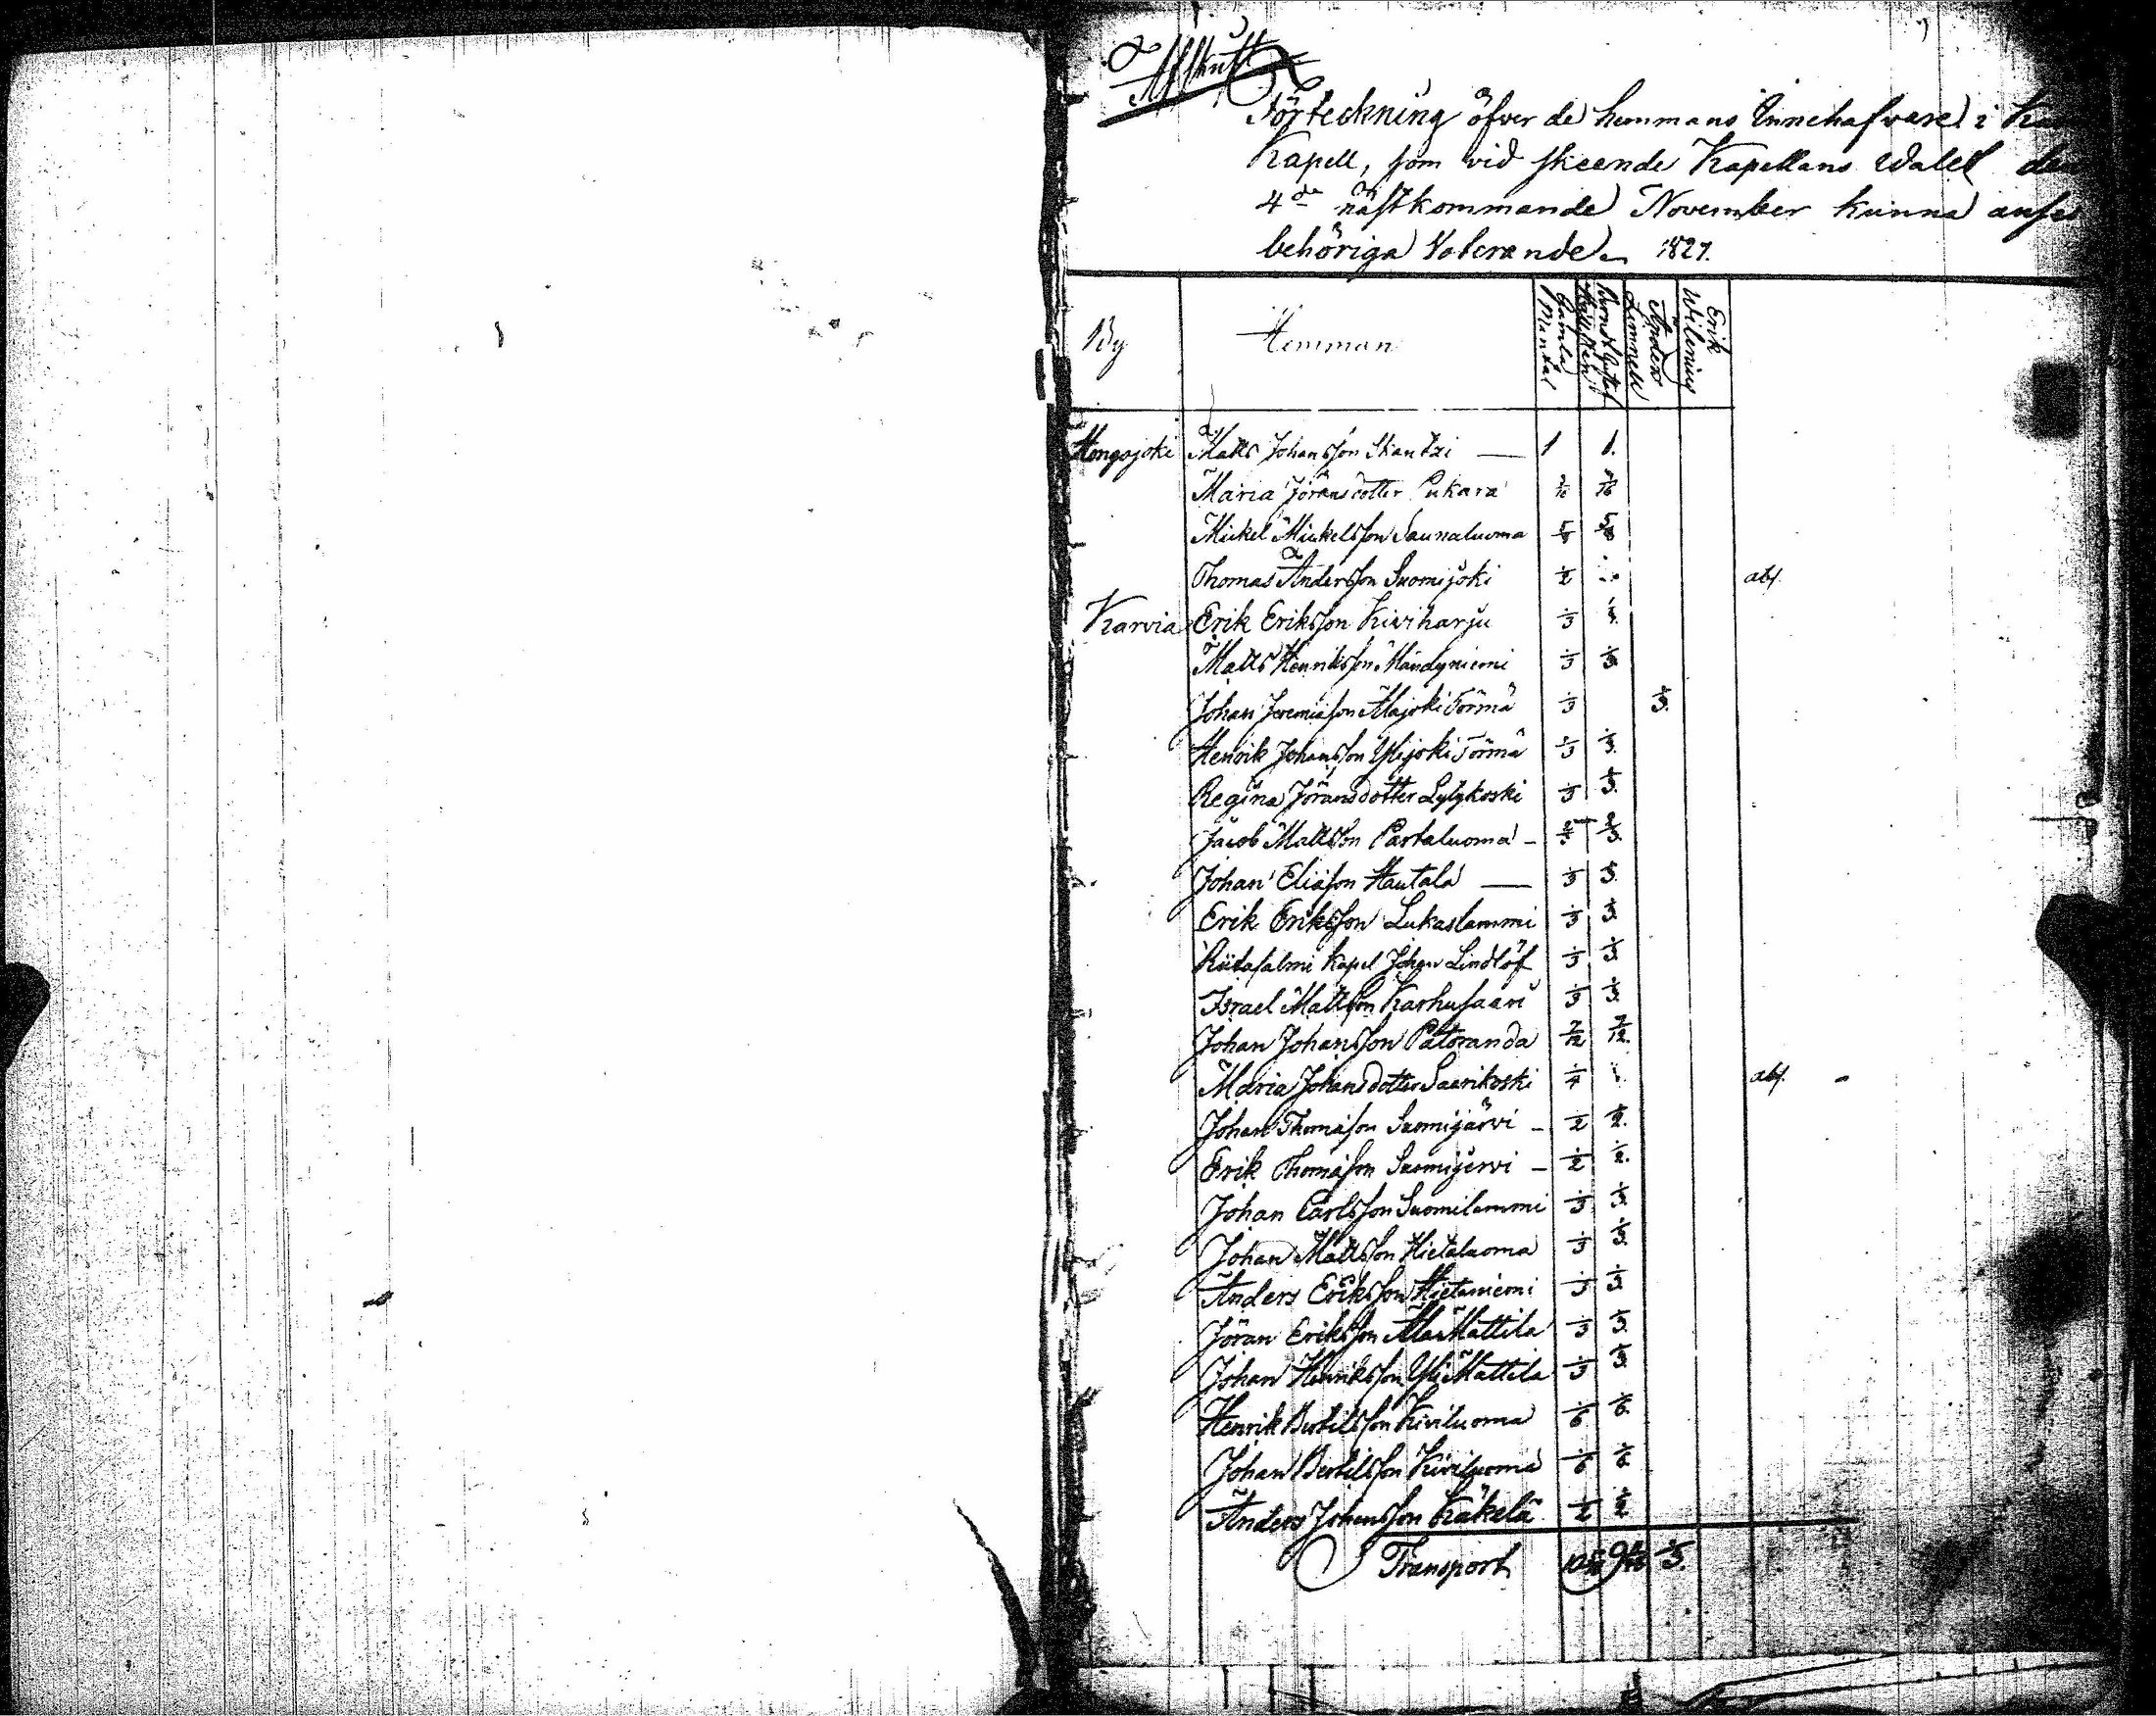 Afskrift
Förteckning öfver de hemmans Innehafvare i
Kapell, som vid skeende Kapellans Walet den
4de nästkommande November kunna anse
behöriga Voterande. 1827.
By Hemman Gamla Mantal Anders Limnell Erik Wilenius
Hongojoki Matts Johansson Skantzi — 1 1.
Maria Jöransdotter Pukara 3/16 3/16
Mickel Mickelsson Saunaluoma 5/8 5/8
Thomas Andersson Suomijoki 1/2 abs.
Karvia Erik Eriksson Kiviharju 1/3 1/3.
Matts Henriksson Mändyniemi 1/3 1/3.
Johan Jeremiasson Alajoki Törmä 1/3 1/3.
Henrik Johansson Ylijoki Törmä 1/3 1/3.
Regina Jöransdotter Lylykoski 1/3 1/3.
Jacob Mattsson Partaluoma - 2/3 2/3.
Johan Eliasson Hautala — 1/3 1/3.
Erik Eriksson Lukaslammi 1/3 1/3.
Riitasalmi Kapel Johan Lindlöf 1/3 1/3.
Israel Mattsson Karhusaari 1/3 1/3.
Johan Johansson Patoranda 7/12 7/12.
Maria Johansdotter Saarikoski 1/4 abs. -
Johan Thomasson Suomijärvi - 1/2 1/2.
Erik Thomasson Suomijervi - 1/2 1/2.
Johan Carlsson Suomilammi 1/3 1/3.
Johan Mattsson Hietaluoma 1/3 1/3.
Anders Eriksson Hietaniemi 1/3 1/3.
Jöran Eriksson Ala Mattila 1/3 1/3.
Johan Henriksson Yli Mattila 1/3 1/3.
Henrik Bertilsson Kiviluoma 1/6 1/6.
Johan Bertilsson Kiviluoma 1/6 1/6.
Anders Johansson Käkelä 1/2 1/2
Transport 1/3.